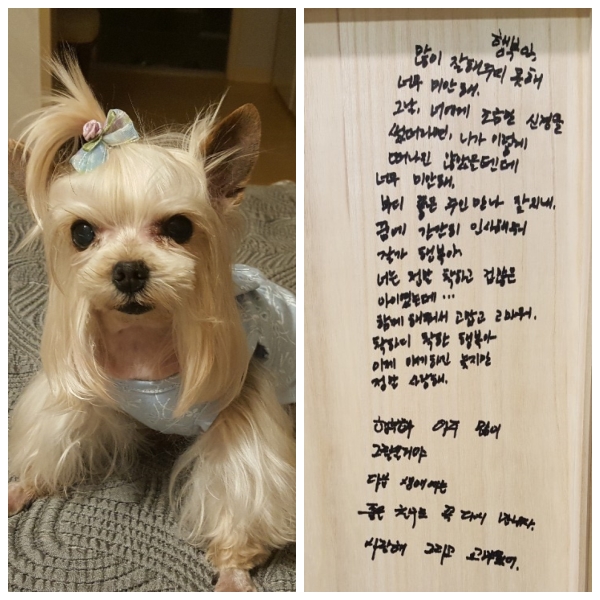 행복아,
많이 잘해주지 못해
너무 미안해.
그날, 너에게 조금만 신경을
썼더라면, 니가 이렇게
떠나진 않았을텐데
너무 미안해.
부디 좋은 주인 만나 잘지내.
꿈에 간간히 인사해줘
잘가 행복아
너는 정말 착하고 겁많은
아이였는데...
함께 해줘서 고맙고 고마워.
착하디 착한 행복아
이제 얘기하긴 늦지만
정말 사랑해.
행복아 아주 많이
그리울거야
다음 생에에는
좋은 친구로 꼭 다시 만나자.
사랑해 그리고 고마웠어.